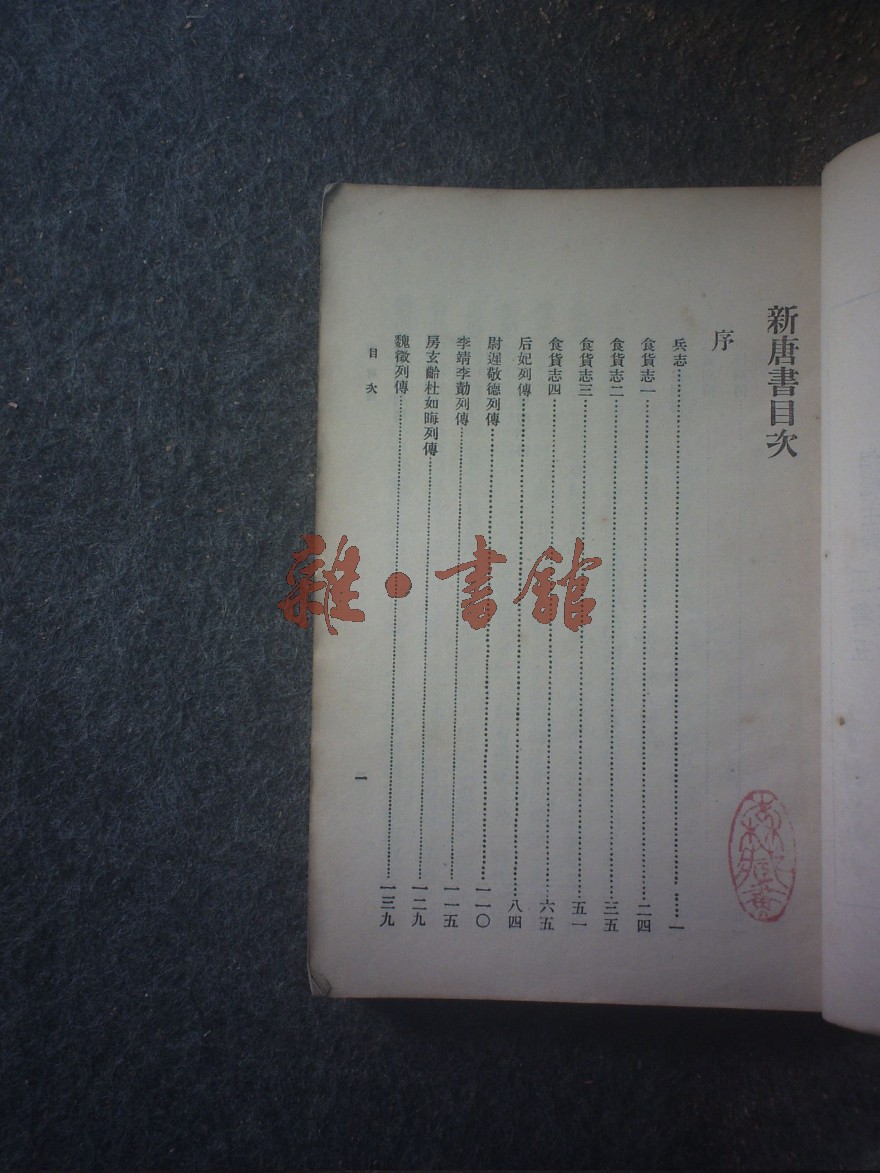 新唐書目次
序
兵志……一
食貨志一……二四
食貨志二……三五
食貨志三……五一
食貨志四……六五
后妃列傳……八四
尉遲敬德列傳……一一〇
李靖李勣列傳……一一五
房玄齡杜如晦列傳……一二九
魏徵列傳……一三九
目次
一
雜·書館